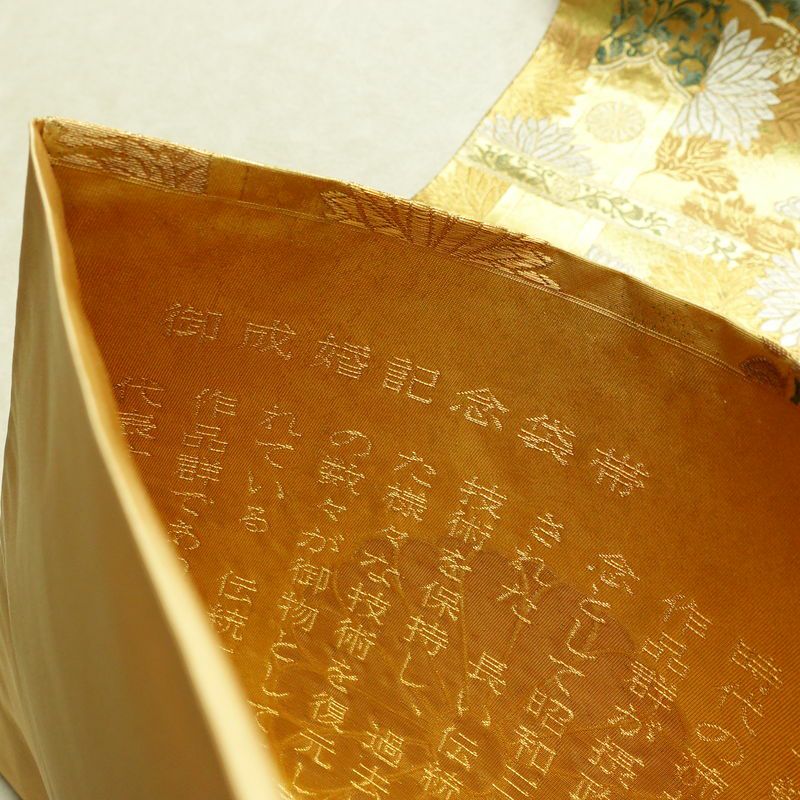 御成婚記念袋帯
代の
作品群が
念として昭和三
された 長い伝統
技術を保持し、過去
た様々な技術を復元し
の数々が御物として
れている 伝統
作品群であ
代表